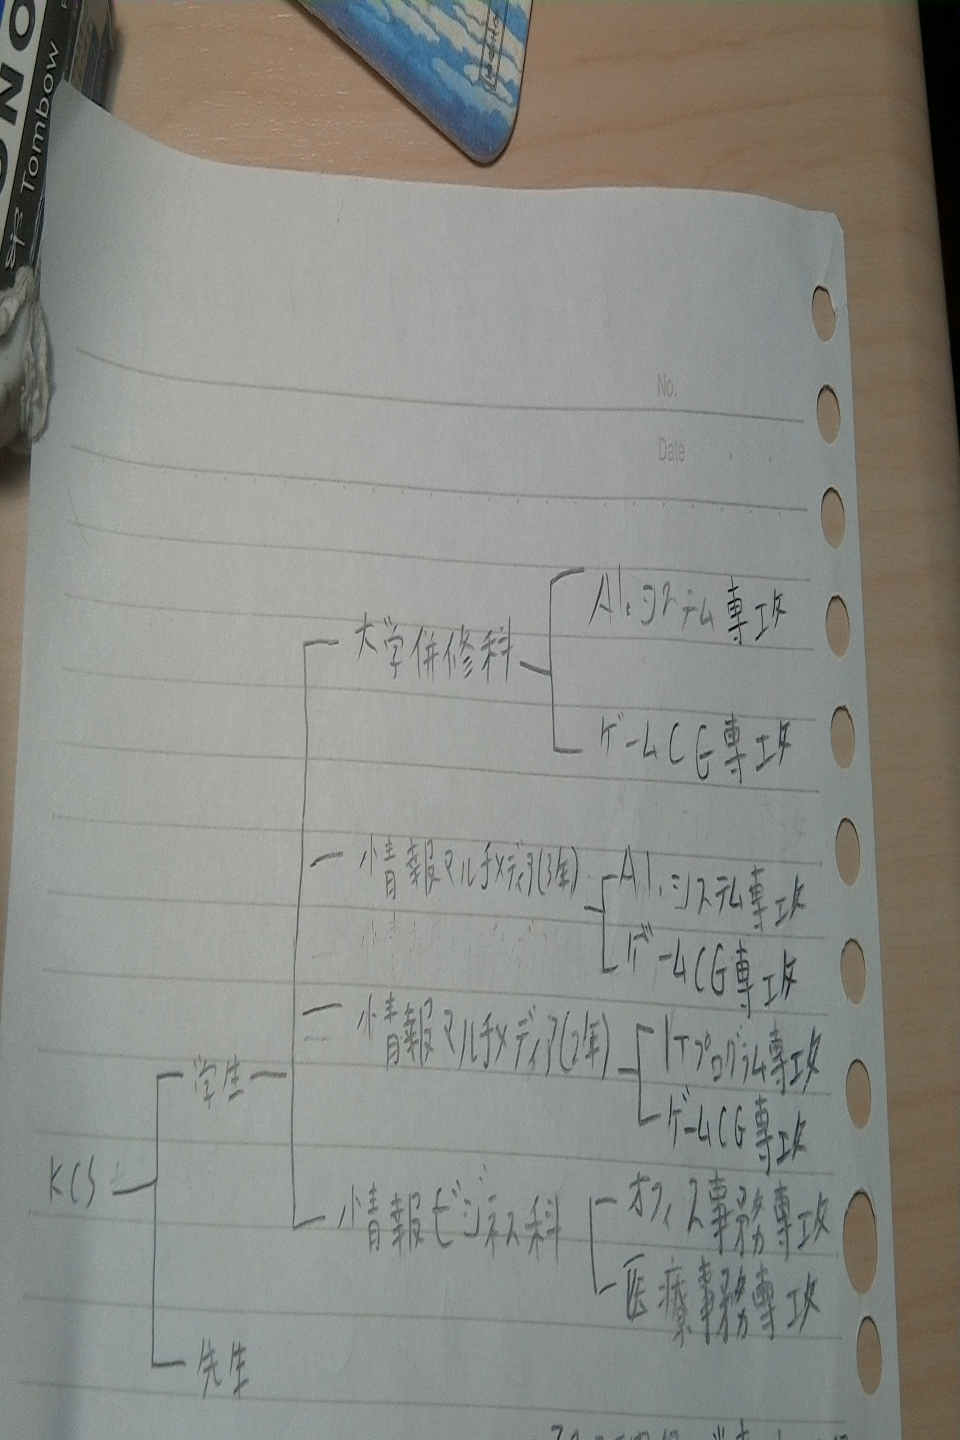 Tombow
No.
Date
AI.システム専攻
大学併修科
ゲームCG専攻
情報マルチメディア(3年)
AI.システム専攻
ゲームCG専攻
情報マルチメディア(2年)
ITプログラム専攻
ゲームCG専攻
学生
KCS
情報ビジネス科
オフィス事務専攻
医療事務専攻
先生